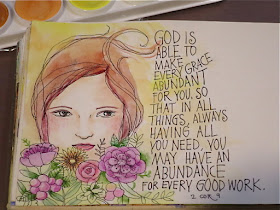 GOD IS
ABLE TO
MAKE
EVERY GRACE
ABUNDANT
FOR YOU. SO
THAT IN ALL
THINGS, ALWAYS
HAVING ALL
YOU NEED, YOU
MAY HAVE AN
ABUNDANCE
FOR EVERY GOOD WORK.
2 COR 9